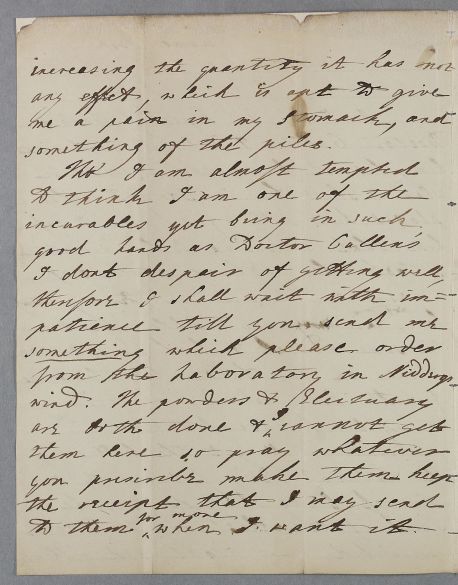 increasing the quantity it has not
any effect, which is apt to give
me a pain in my Stomach, and
something of the piles.
Tho' I am almost tempted
to think I am one of the
incurables yet being in such
good hands as Doctor Cullens
I dont despair of getting well,
therefore I shall wait with im=
patience till you send me
something which please order
from the Laboratory in Niddrys
wind. The powders & Electuary
are both done & I cannot get
them here so pray whatever
you prescribe make them keep
the receipt that I may send
to them for more when I want it.